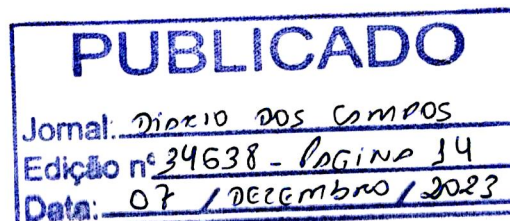 PUBLICADO
Jornal: DIÁRIO DOS CAMPOS
Edição nº 34638 - PAGINA 14
Data: 07 / DEZEMBRO / 2023